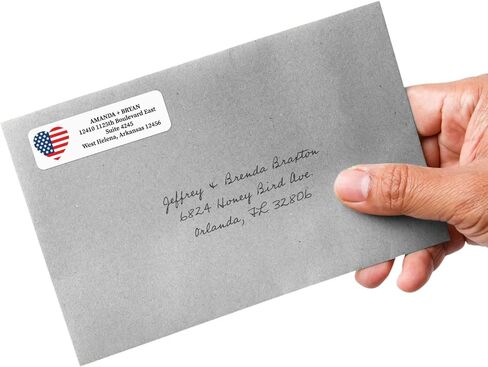 AMANDA + BRYAN
12410 1125th Boulevard East
Suite 4245
West Helena, Arkansas 12456
Jeffrey & Brenda Braxton
6824 Honey Bird Ave.
Orlando, FL 32806